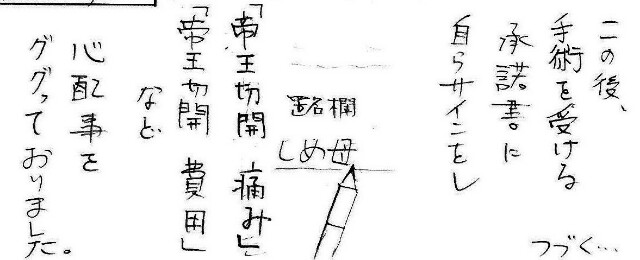 この後、
手術を受ける
承諾書に
自らサインをし
署名欄
しめ母
「帝王切開 痛み」
「帝王切開 費用」
など
心配事を
ググっておりました。
つづく…